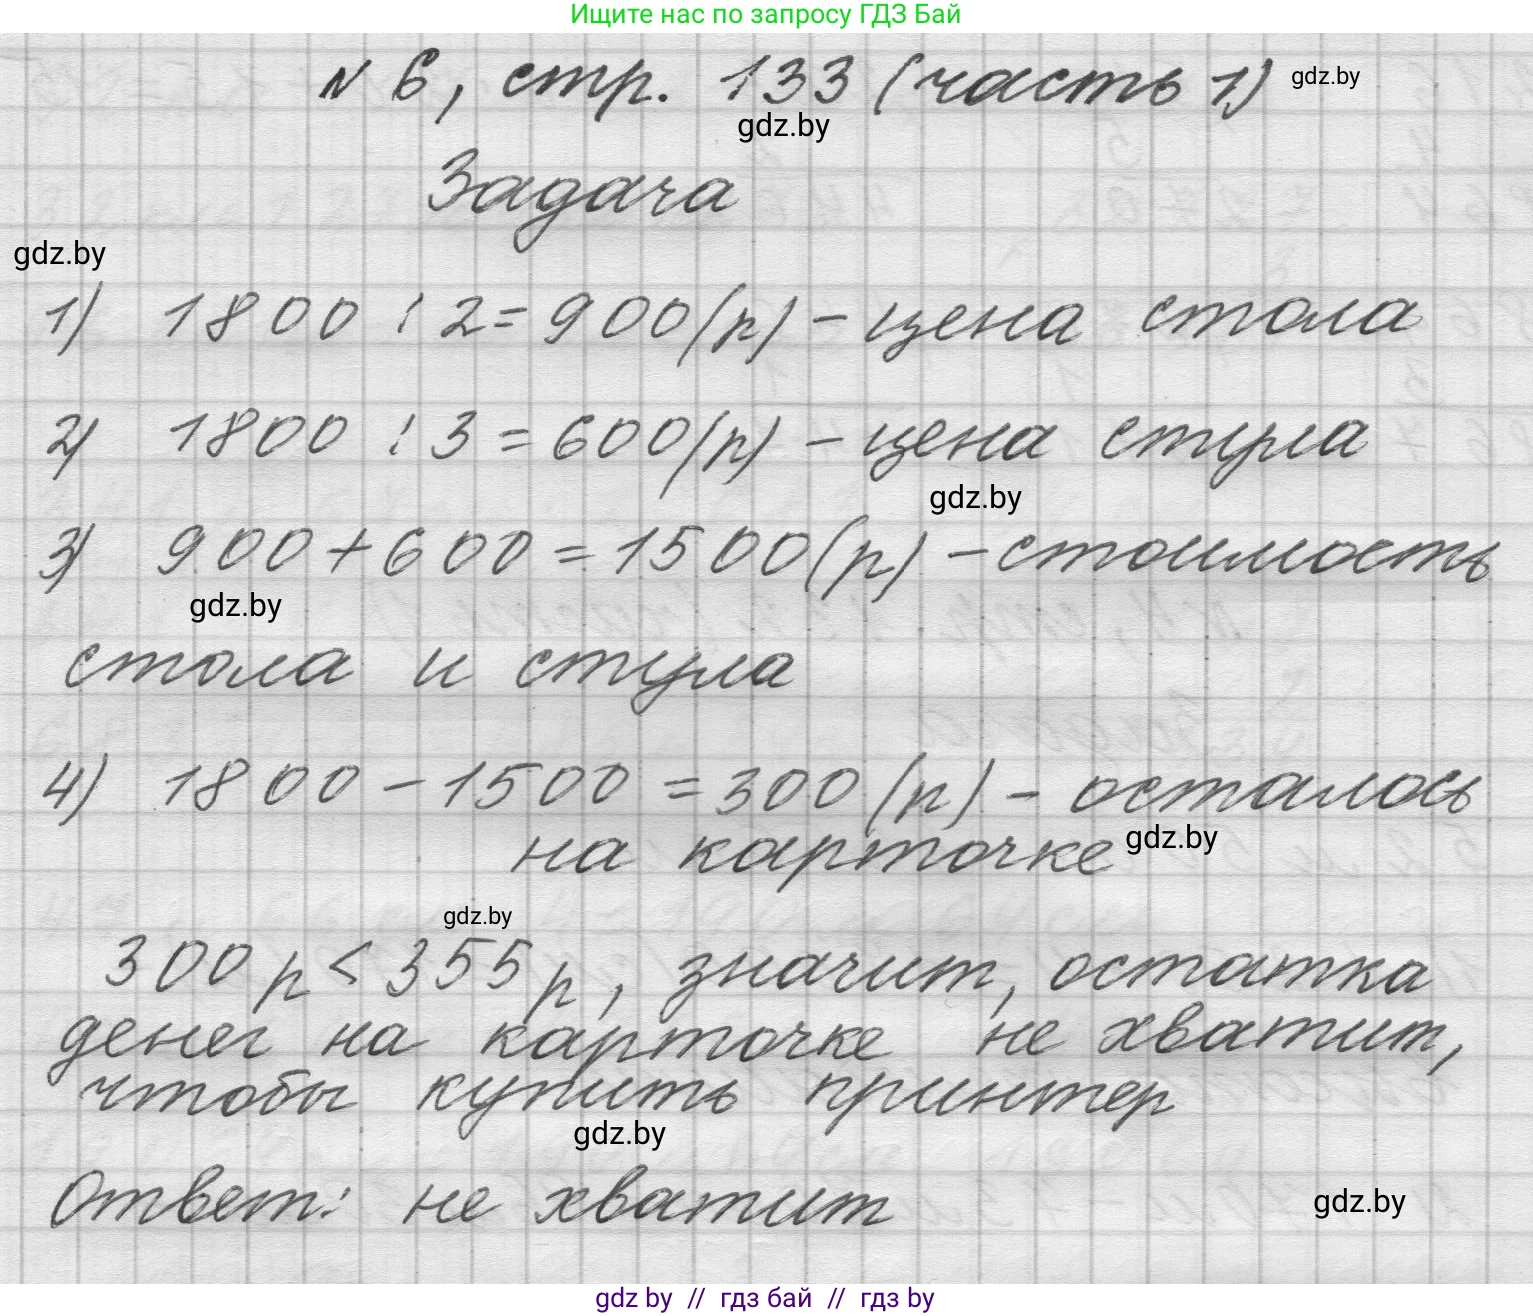 Ищите нас по запросу ГДЗ Бай
№ 6, стр. 133 (часть 1) gdz.by
gdz.by
Задача
gdz.by
1) 1800 : 2 = 900 (р) – цена стола
2) 1800 : 3 = 600 (р) – цена стула
gdz.by
3) 900 + 600 = 1500 (р) – стоимость
gdz.by
стола и стула
4) 1800 – 1500 = 300 (р) – осталось
на карточке gdz.by
gdz.by
300 р < 355 р, значит, остатка
денег на карточке не хватит,
чтобы купить принтер
gdz.by
Ответ: не хватит gdz.by
gdz by // гдз бай // гдз by